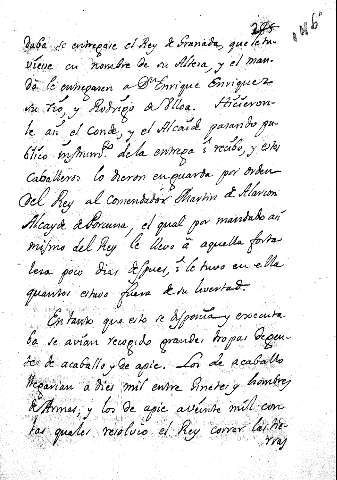 146
daba se entregase el Rey de Granada, que le tu-
viese en nombre de su Alteza, y el man-
dó le entregasen a Dn. Enrique Enriquez
su tio, y Rodrigo de Ulloa. Hicieron-
le asi el Conde, y el Alcaide pasando pu-
blico instrumto. de la entrega i recibo, y estos
Caballeros lo dieron en guarda por orden
del Rey al Comendador Martin de Alarcon
Alcayde de Porcuna, el qual por mandado asi
mismo del Rey le llevo a aquella forta
leza poco dias despues, i le tuvo en ella
quanto estuvo fuera de su libertad.
En tanto que esto se disponia y executa-
ba se avian recogido grandes tropas de gen-
te de acaballo y de apie. Los de acaballo
llegarian a dies mil entre Ginetes y hombres
de Armas, y los de apie a veinte mil con
las quales resolvio el Rey correr las tie-
rras